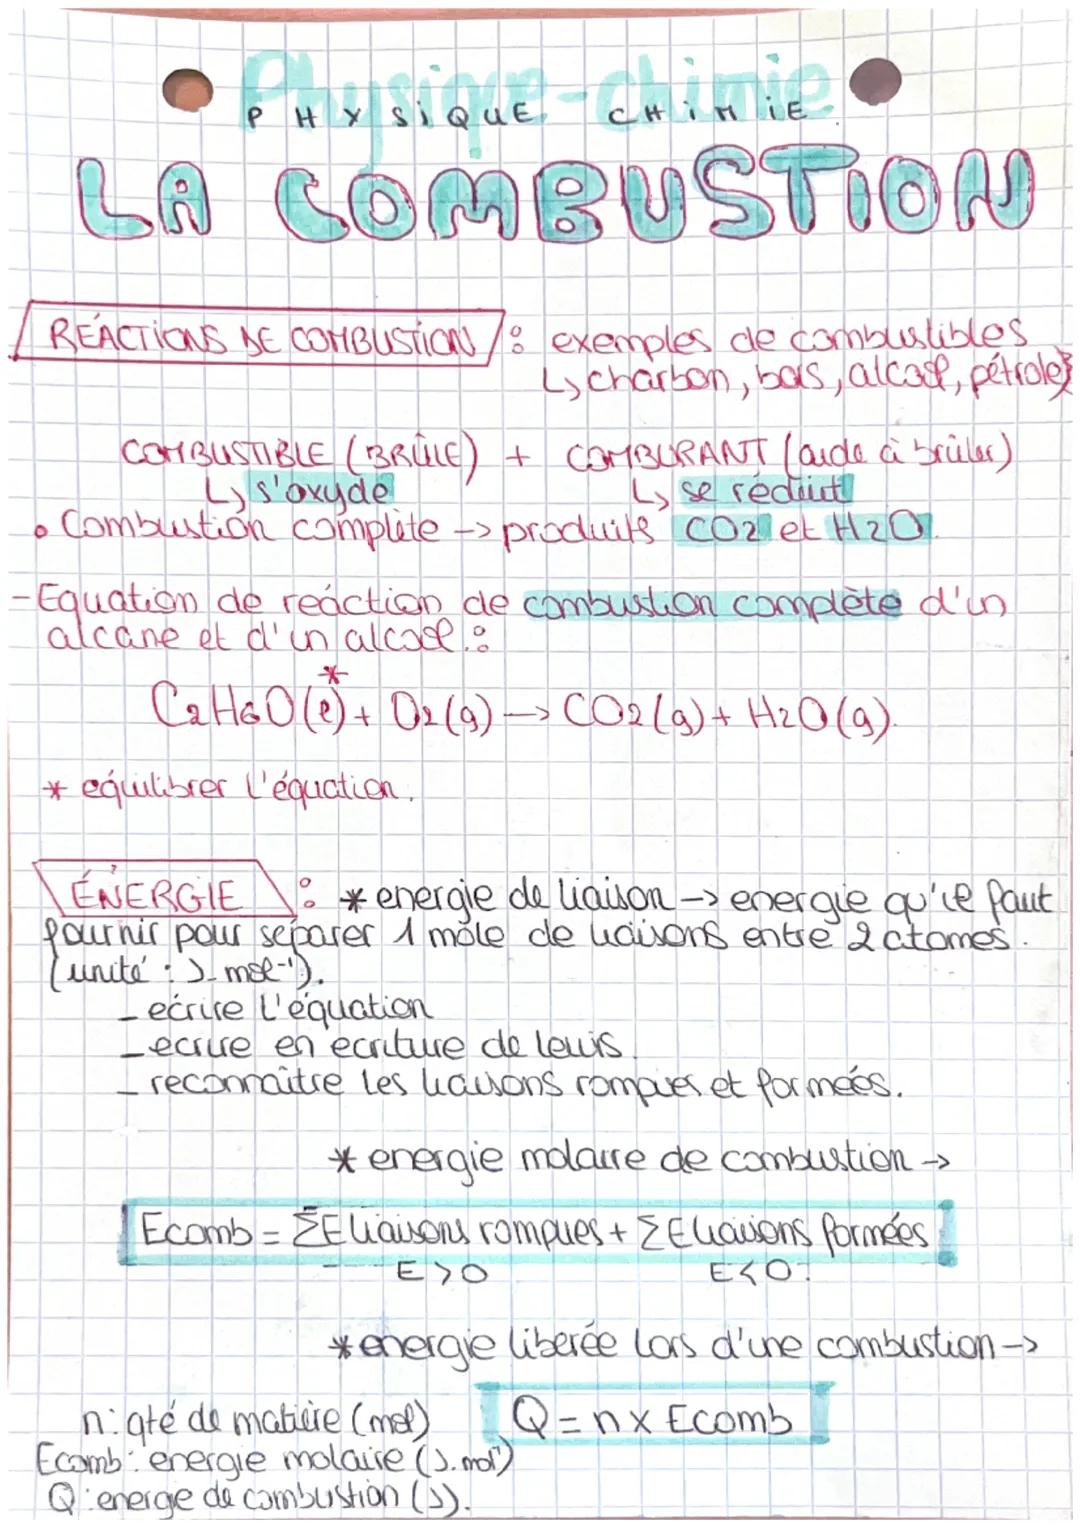 Physique-chimie
PHYSIQUE CHIMIE
LA COMBUSTION
RÉACTIONS DE COMBUSTION : exemples de combustibles
↳ charbon, bois, alcool, pétrole
COMBUSTIBLE (BRÛLE) + COMBURANT (aide à brûler)
↳ s'oxyde ↳ se réduit
• Combustion complète -> produits CO2 et H2O.
- Equation de réaction de combustion complète d'un
alcane et d'un alcool :
C2H6O(l)* + O2(g) -> CO2(g) + H2O(g).
* équilibrer l'équation.
ÉNERGIE : * energie de liaison -> energie qu'il faut
fournir pour séparer 1 mole de liaisons entre 2 atomes.
(unité : J.mol⁻¹).
- ecrire l'équation
- ecrire en ecriture de lewis.
- reconnaître les liaisons rompues et formées.
* energie molaire de combustion ->
Ecomb = ΣE liaisons rompues + ΣE liaisons formées
E>0 E<0.
* energie liberée lors d'une combustion ->
n : qté de matière (mol) Q = n x Ecomb
Ecomb : energie molaire (J.mol⁻¹)
Q : energie de combustion (J).